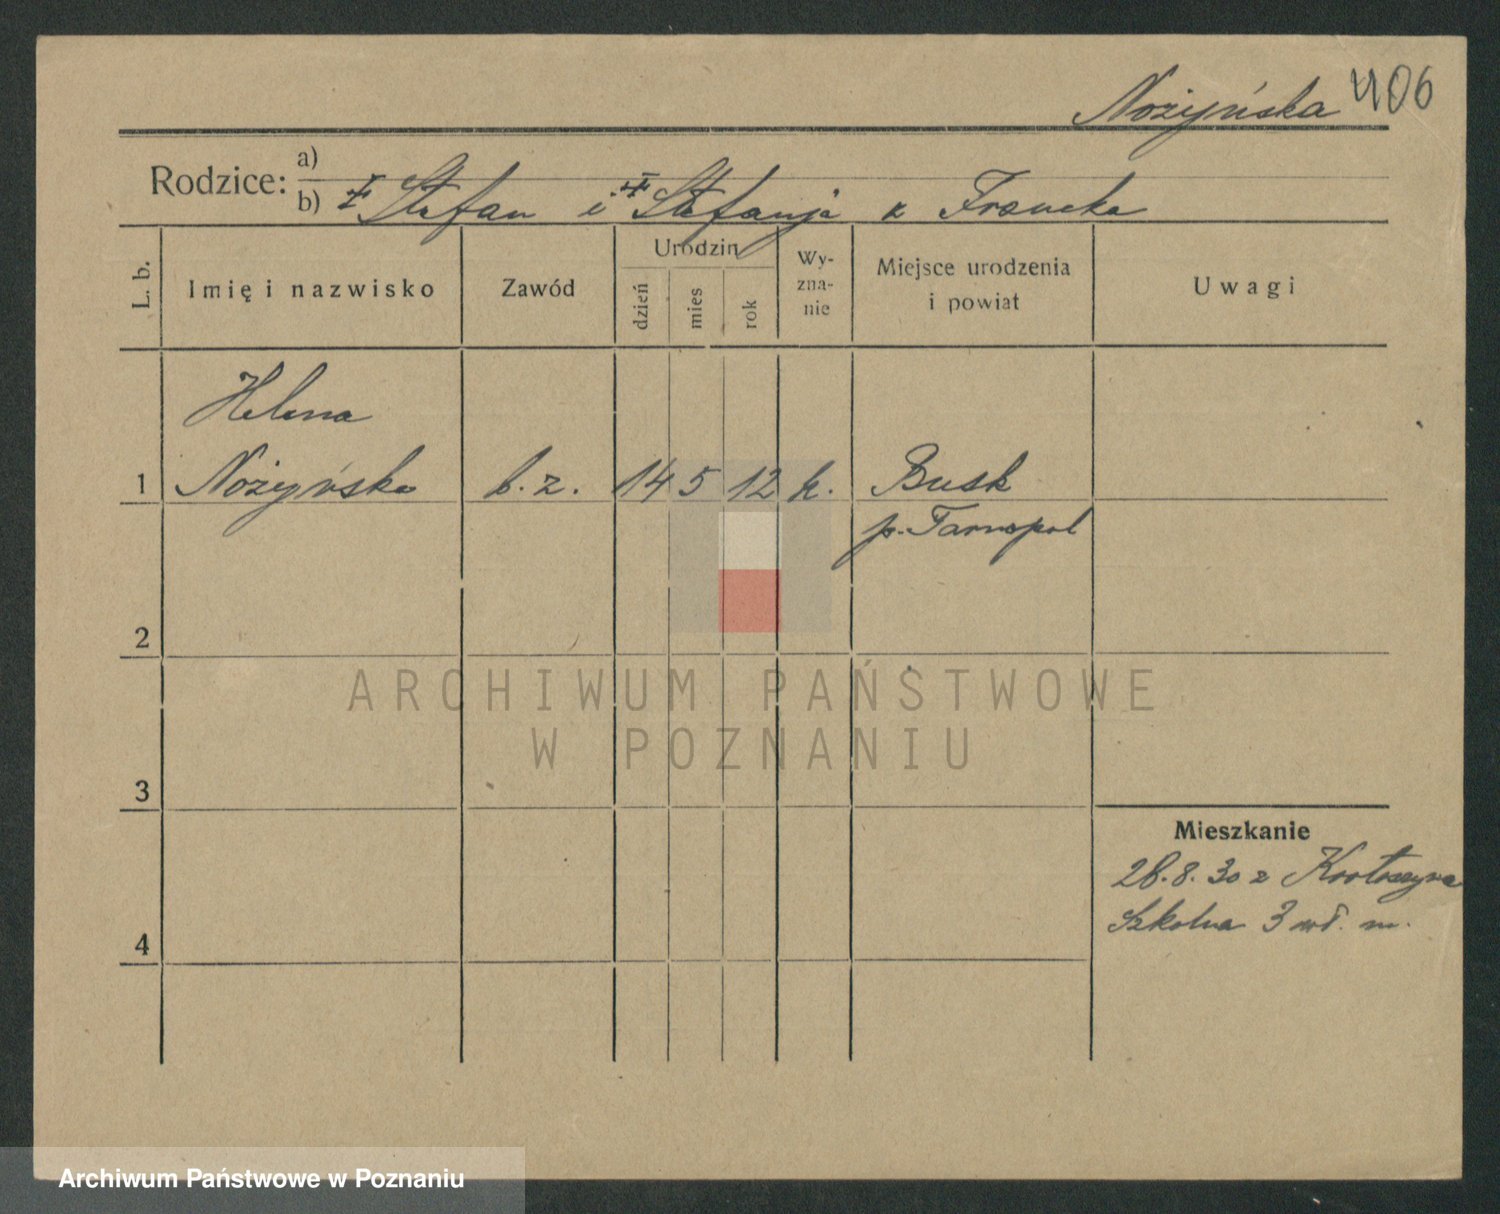 Nożyńska 406
Rodzice: a)
b) Stefan i Stefanja z
L. b.
Imię i nazwisko
Zawód
Urodzin
dzień
mies
rok
Wy-
zna-
nie
Miejsce urodzenia
i powiat
Uwagi
Helena
1 Nożyńska b. z. 14 5 12 k. Busk
p. Tarnopol
2
3
4
Mieszkanie
28.8.30 z
Szkolna 3 m.
ARCHIWUM PAŃSTWOWE
W POZNANIU
Archiwum Państwowe w Poznaniu